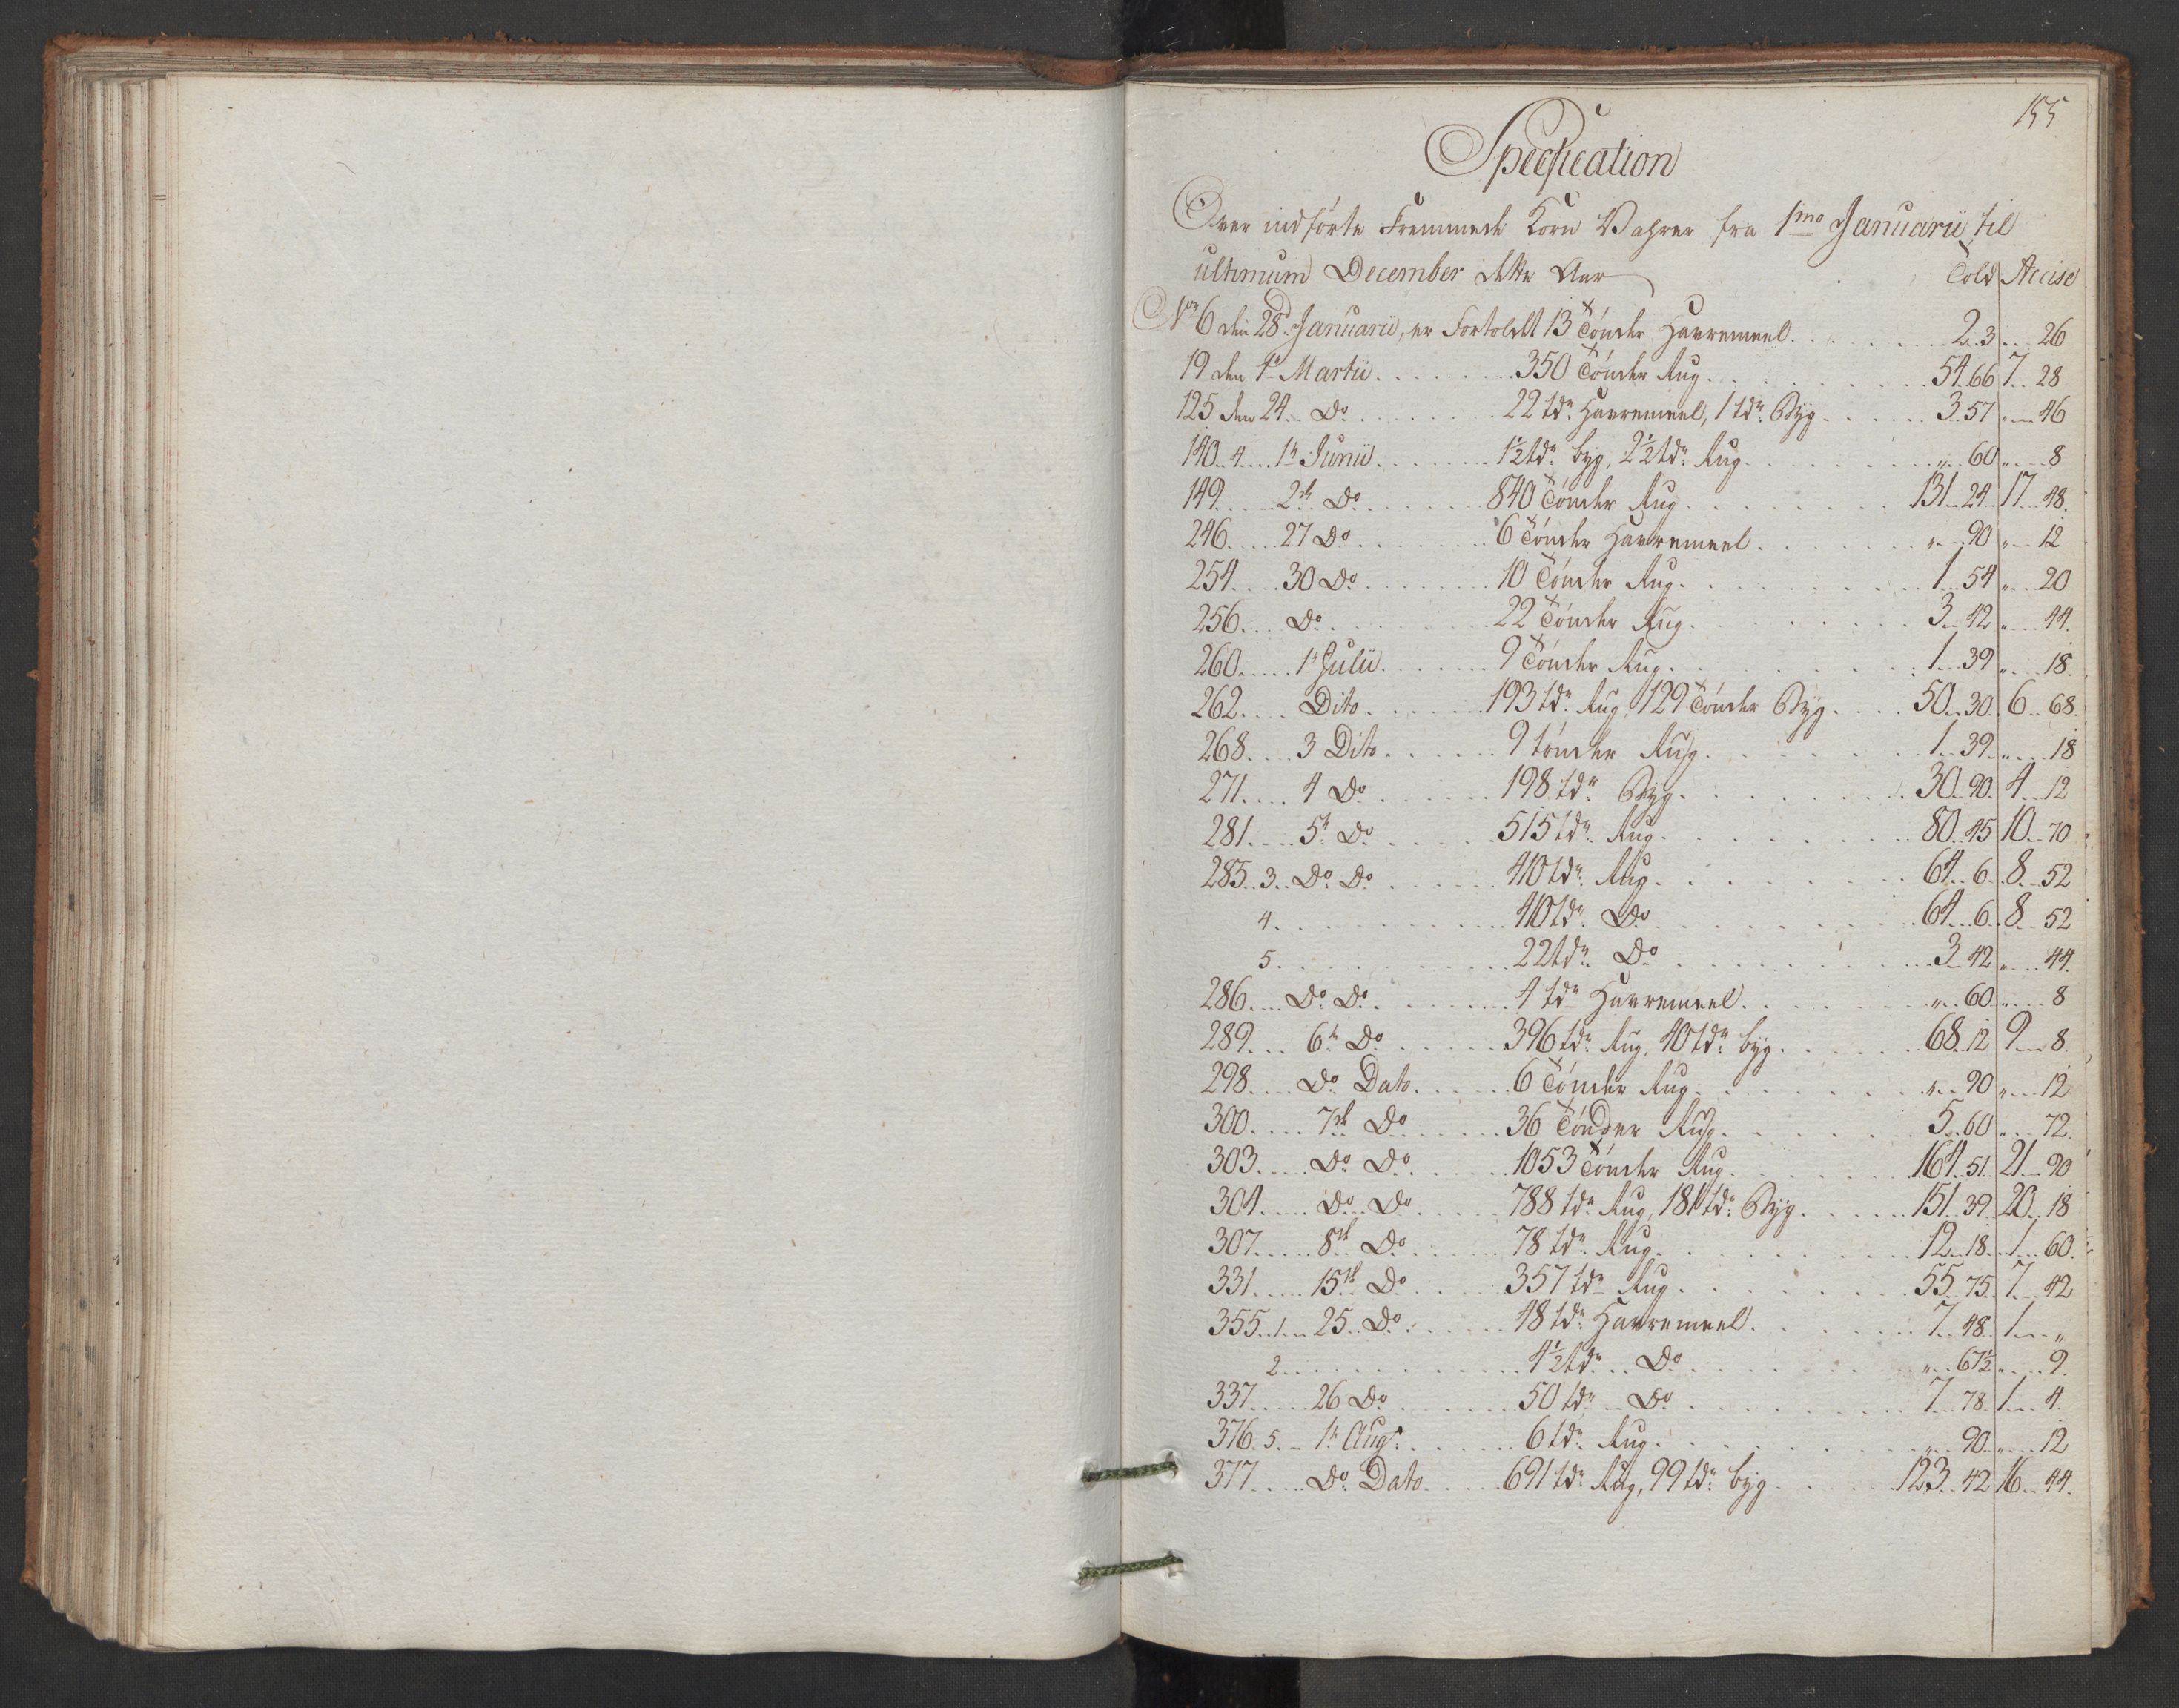 155
Specification
Over indførte Fremmede Korn Vahrer fra 1mo Januarii til
ultimum December dette Aar Told Accise
No 6 den 28d Januarii, er Fortoldet 13 Tønder Havremeel . . . 2 . 3 . . 26
19 den 1t Martii . . . 350 Tønder Rug . . . 54 . 66 7 . . 28
125 den 24 . Do . . . 22 tdr Havremeel, 1 tdr Byg . . . 3 . 57 " . . 46
140 . 4 . . 1t Junii . . . 1½ tdr byg, 2½ tdr Rug . . . " . 60 " . . 8
149 . . . 2de Do . . . 840 Tønder Rug . . . 131 . 24 17 . . 48
246 . . . 27 Do . . . 6 Tønder Havremeel . . . " . . 90 " . . 12
254 . . . 30 Do . . . 10 Tønder Rug . . . 1 . . 54 " . . 20
256 . . . Do . . . 22 Tønder Rug . . . 3 . . 42 " . . 44
260 . . . 1t Julii . . . 9 Tønder Rug . . . 1 . . 39 " . . 18
262 . . . Dito . . . 193 tdr Rug, 129 Tønder Byg . . . 50 . . 30 6 . . 68
268 . . . 3 Dito . . . 9 tønder Rug . . . 1 . . 39 " . . 18
271 . . . 4 Do . . . 198 tdr Byg . . . 30 . 90 4 . . 12
281 . . . 5t Do . . . 515 tdr Rug . . . 80 . 45 10 . . 70
285 . 3 . . Do Do . . . 410 tdr Rug . . . 64 . . 6 8 . . 52
4 . . . 410 tdr Do . . . 64 . . 6 8 . . 52
5 . . . 22 tdr Do . . . 3 . . 42 " . . 44
286 . . . Do Do . . . 4 tdr Havremeel . . . " . . 60 " . . 8
289 . . . 6t Do . . . 396 tdr Rug, 40 tdr byg . . . 68 . 12 9 . . 8
298 . . . Do Dato . . . 6 Tønder Rug . . . " . . 90 " . . 12
300 . . . 7de Do . . . 36 Tønder Rug . . . 5 . . 60 " . . 72
303 . . . Do Do . . . 1053 Tønder Rug . . . 164 . . 51 21 . . 90
304 . . . Do Do . . . 788 tdr Rug, 181 tdr Byg . . . 151 . 39 20 . . 18
307 . . . 8de Do . . . 78 tdr Rug . . . 12 . . 18 1 . . 60
331 . . . 15de Do . . . 357 tdr Rug . . . 55 . 75 7 . . 42
355 . 1 . . 25 . Do . . . 48 tdr Havremeel . . . 7 . . 48 1 . . "
2 . . . 4½ tdr . . Do . . . " . . 67½ " . . 9
337 . . . 26 Do . . . 50 tdr . Do . . . 7 . . 78 1 . . 4
376 . 5 . . 1t Augt . . . 6 tdr Rug . . . " . . 90 " . . 12
377 . . . Do Dato . . . 691 tdr Rug, 99 tdr byg . . . 123 . . 42 16 . . 44